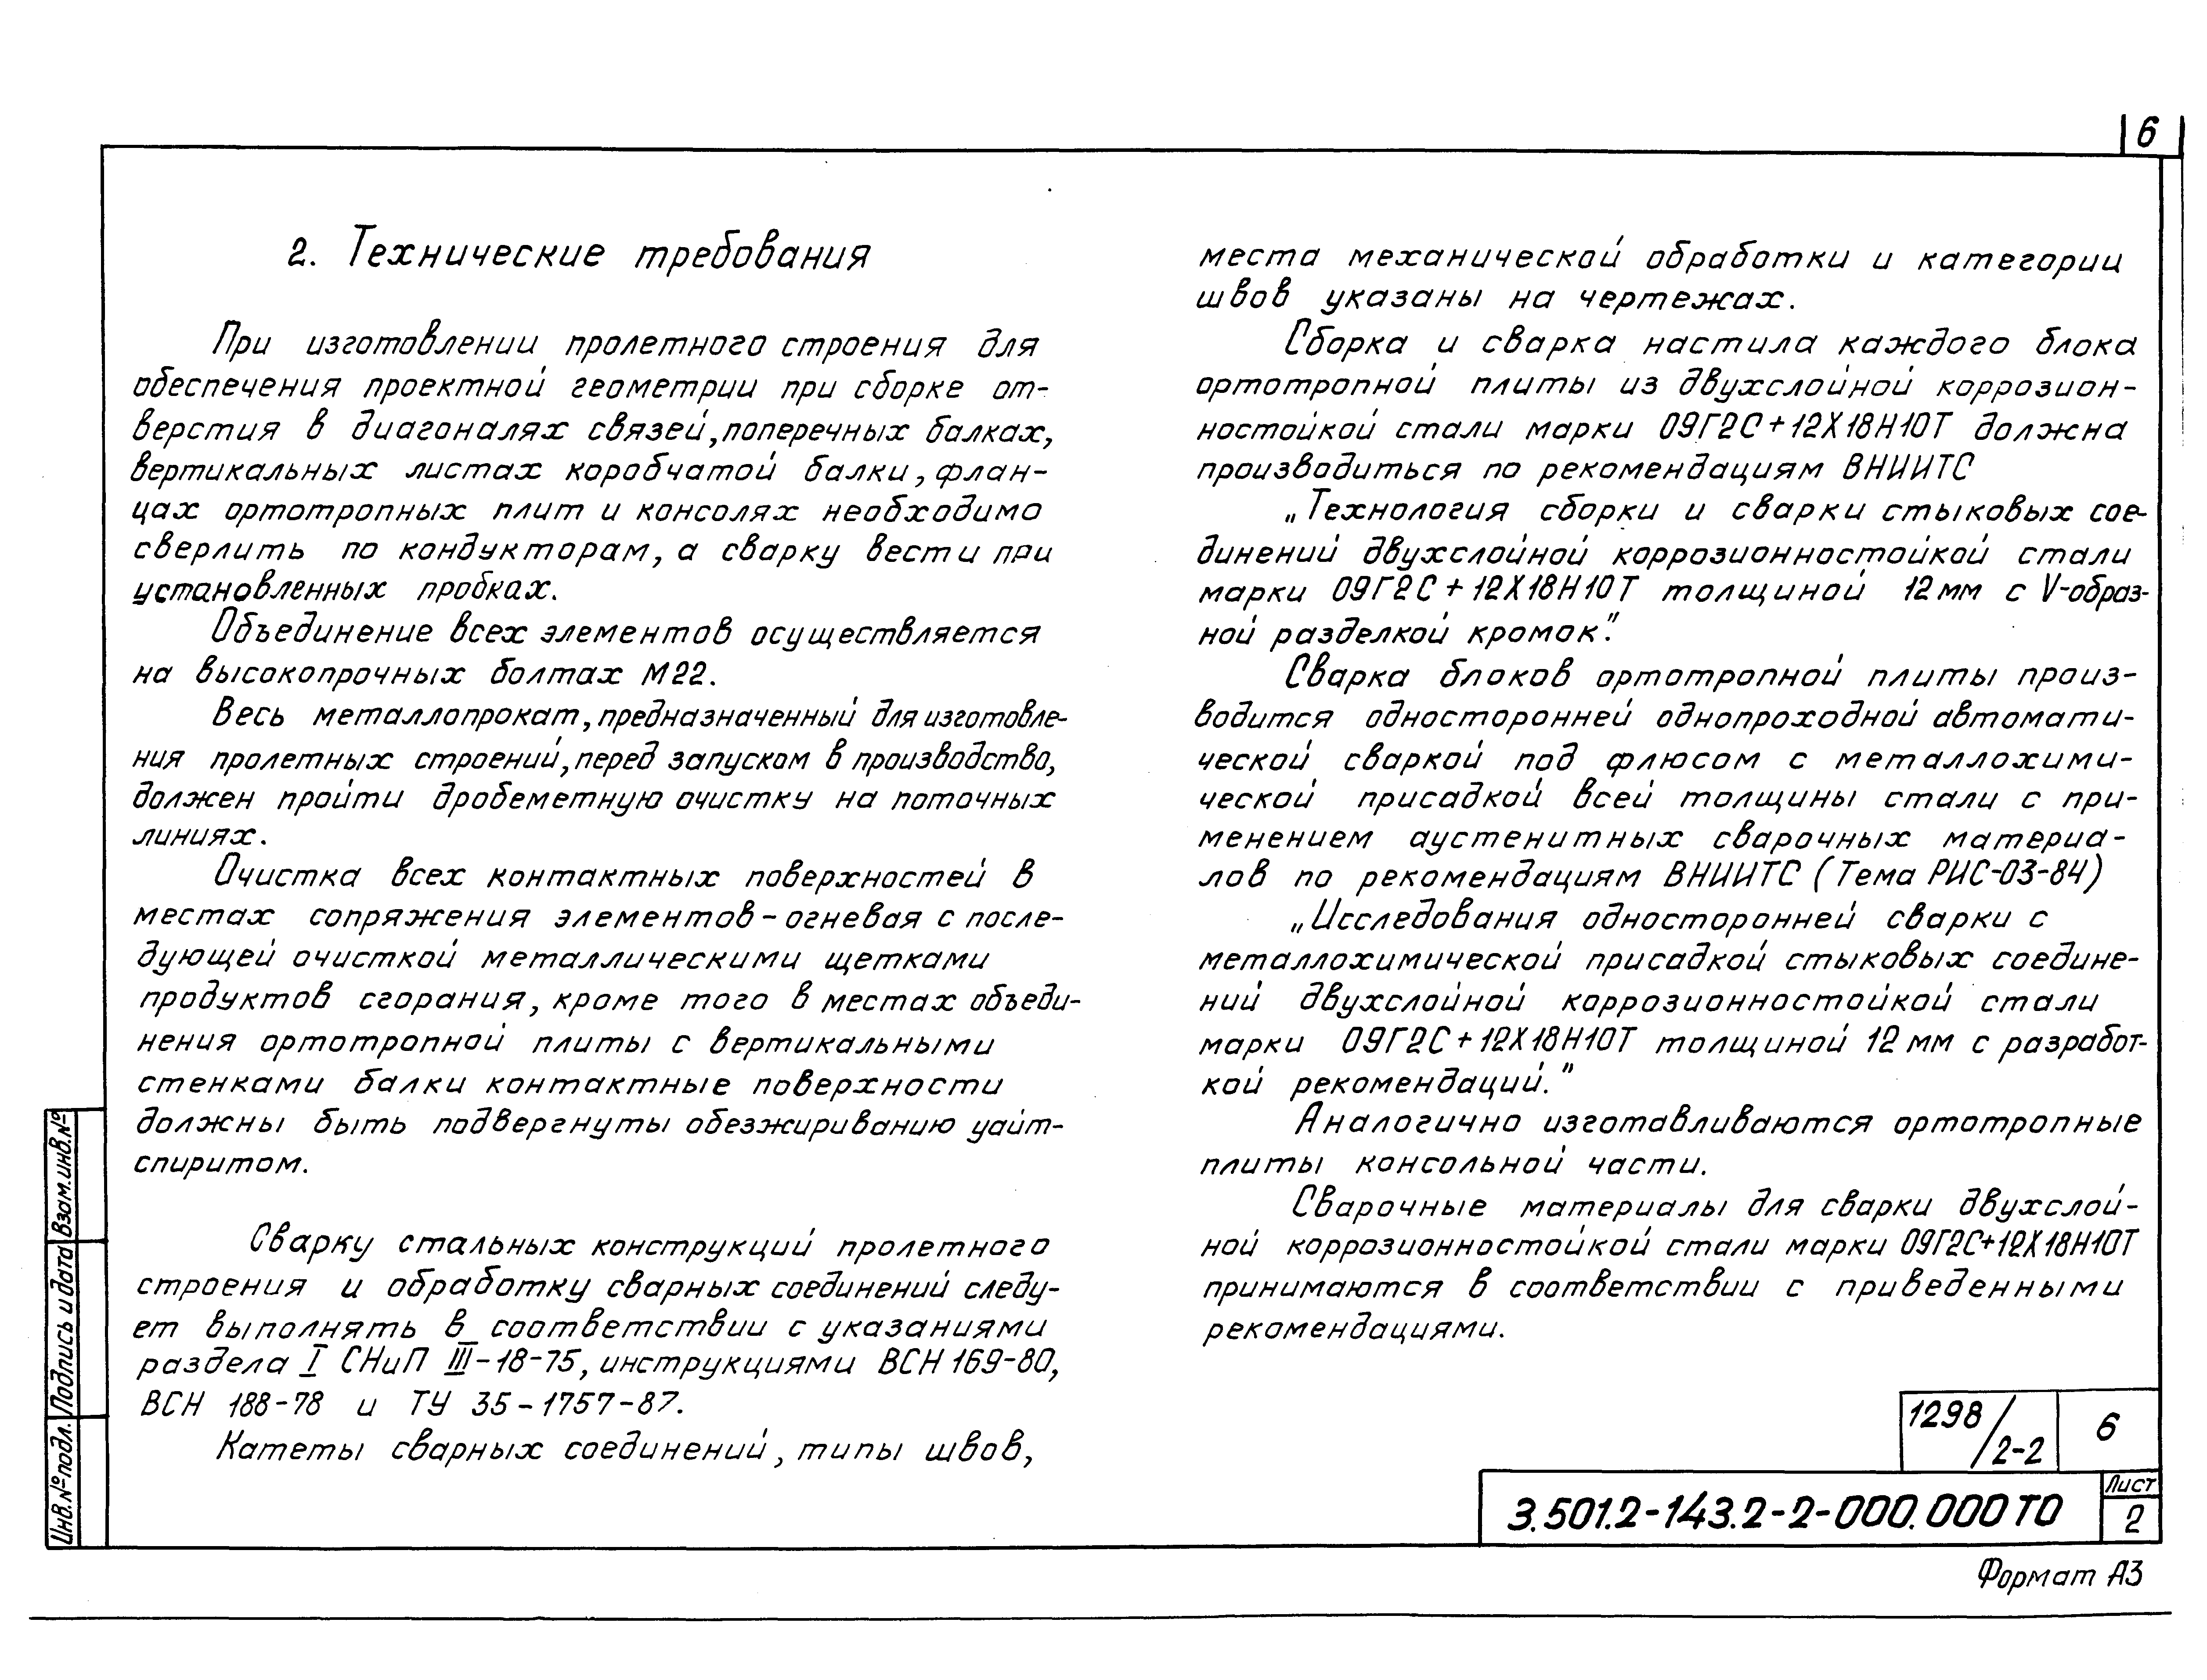 6
2. Технические требования
При изготовлении пролетного строения для
обеспечения проектной геометрии при сборке от-
верстия в диагоналях связей, поперечных балках,
вертикальных листах коробчатой балки, флан-
цах ортотропных плит и консолях необходимо
сверлить по кондукторам, а сварку вести при
установленных пробках.
Объединение всех элементов осуществляется
на высокопрочных болтах М22.
Весь металлопрокат, предназначенный для изготовле-
ния пролетных строений, перед запуском в производство,
должен пройти дробеметную очистку на поточных
линиях.
Очистка всех контактных поверхностей в
местах сопряжения элементов - огневая с после-
дующей очисткой металлическими щетками
продуктов сгорания, кроме того в местах объеди-
нения ортотропной плиты с вертикальными
стенками балки контактные поверхности
должны быть подвергнуты обезжириванию уайт-
спиритом.
Сварку стальных конструкций пролетного
строения и обработку сварных соединений следу-
ет выполнять в соответствии с указаниями
раздела I СНиП III-18-75, инструкциями ВСН 169-80,
ВСН 188-78 и ТУ 35-1757-87.
Катеты сварных соединений, типы швов,
места механической обработки и категории
швов указаны на чертежах.
Сборка и сварка настила каждого блока
ортотропной плиты из двухслойной коррозион-
ностойкой стали марки 09Г2С+12Х18Н10Т должна
производиться по рекомендациям ВНИИТС
„Технология сборки и сварки стыковых сое-
динений двухслойной коррозионностойкой стали
марки 09Г2С+12Х18Н10Т толщиной 12 мм с V-образ-
ной разделкой кромок."
Сварка блоков ортотропной плиты произ-
водится односторонней однопроходной автомати-
ческой сваркой под флюсом с металлохими-
ческой присадкой всей толщины стали с при-
менением аустенитных сварочных материа-
лов по рекомендациям ВНИИТС (Тема РИС-03-84)
„Исследования односторонней сварки с
металлохимической присадкой стыковых соедине-
ний двухслойной коррозионностойкой стали
марки 09Г2С+12Х18Н10Т толщиной 12 мм с разработ-
кой рекомендаций."
Аналогично изготавливаются ортотропные
плиты консольной части.
Сварочные материалы для сварки двухслой-
ной коррозионностойкой стали марки 09Г2С+12Х18Н10Т
принимаются в соответствии с приведенными
рекомендациями.
Инв.№ подл. Подпись и дата Взам.инв.№
1298/2-2 6
3.501.2-143.2-2-000.000 ТО
Лист
2
Формат А3